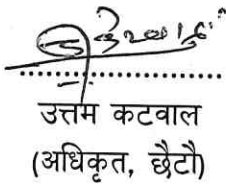 उत्तम कटवाल
(अधिकृत, छैटौ)